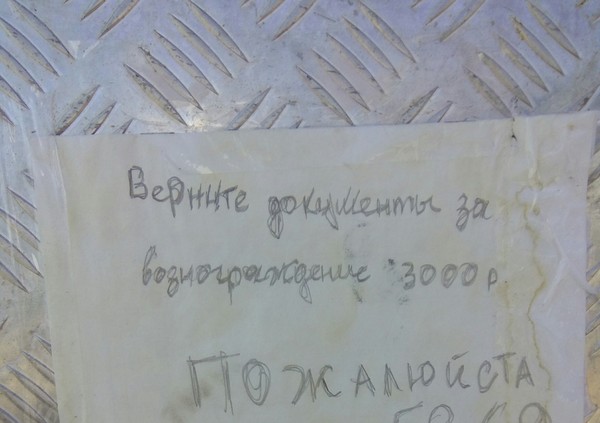 Верните документы за
вознограждение 3000 р.
ПОЖАЛЮЙСТА